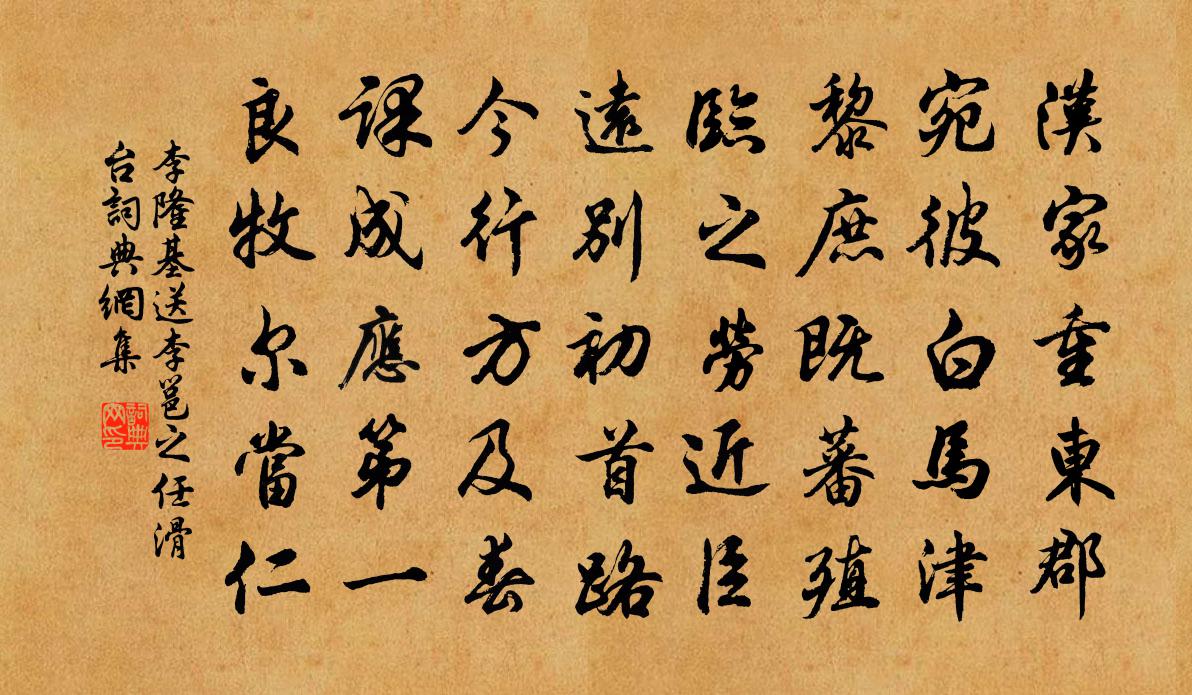 漢家重東郡
宛彼白馬津
黎庶既蕃殖
臨之勞近臣
遠別初首路
今行方及春
課成應第一
良牧尔當仁
李隆基送李邕之任滑
台詞典網集
詞典
网印